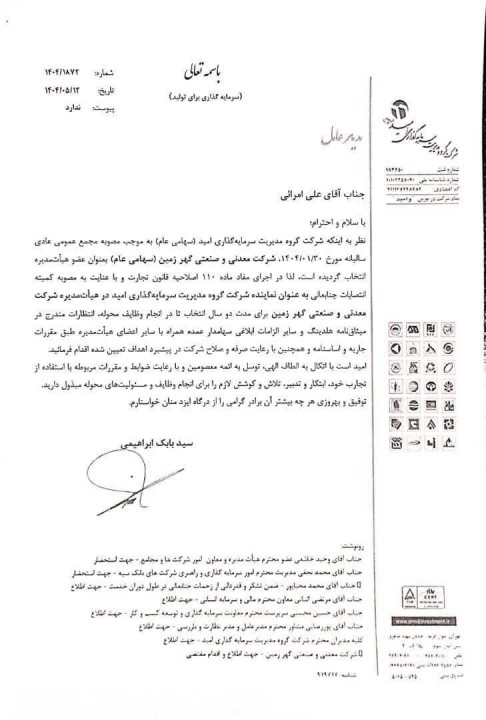 باسمه تعالی
(سرمایه گذاری برای تولید)
شماره: ۱۴۰۴/۱۸۷۲
تاریخ: ۱۴۰۴/۰۵/۱۲
پیوست: ندارد
مدیر عامل
شماره ثبت
شماره شناسه ملی
کد اقتصادی
جناب آقای علی امرائی
با سلام و احترام؛
نظر به اینکه شرکت گروه مدیریت سرمایه‌گذاری امید (سهامی عام) به موجب مصوبه مجمع عمومی عادی
سالیانه مورخ ۱۴۰۴/۰۱/۳۰، شرکت معدنی و صنعتی گهر زمین (سهامی عام) بعنوان عضو هیأت‌مدیره
انتخاب گردیده است، لذا در اجرای مفاد ماده ۱۱۰ اصلاحیه قانون تجارت و با عنایت به مصوبه کمیته
انتصابات جنابعالی به عنوان نماینده شرکت گروه مدیریت سرمایه‌گذاری امید در هیأت‌مدیره شرکت
معدنی و صنعتی گهر زمین برای مدت دو سال انتخاب تا در انجام وظایف محوله، انتظارات مندرج در
میثاق‌نامه هلدینگ و سایر الزامات ابلاغی سهامدار عمده همراه با سایر اعضای هیأت‌مدیره طبق مقررات
جاریه و اساسنامه و همچنین با رعایت صرفه و صلاح شرکت در پیشبرد اهداف تعیین شده اقدام فرمائید.
امید است با اتکال به الطاف الهی، توسل به ائمه معصومین و با رعایت ضوابط و مقررات مربوطه با استفاده از
تجارب خود، ابتکار و تدبیر، تلاش و کوشش لازم را برای انجام وظایف و مسئولیت‌های محوله مبذول دارید.
توفیق و بهروزی هر چه بیشتر آن برادر گرامی را از درگاه ایزد منان خواستارم.
سید بابک ابراهیمی
رونوشت:
جناب آقای وحید خاشعی عضو محترم هیأت مدیره و معاون امور شرکت ها و مجامع - جهت استحضار
جناب آقای محمد نجفی مدیریت محترم امور سرمایه گذاری و راهبری شرکت های بانک سپه - جهت استحضار
جناب آقای محمد محیاپور - ضمن تشکر و قدردانی از زحمات جنابعالی در طول دوران خدمت - جهت اطلاع
جناب آقای مرتضی معاون محترم مالی و سرمایه انسانی - جهت اطلاع
جناب آقای حسین محسنی سرپرست محترم معاونت سرمایه گذاری و توسعه کسب و کار - جهت اطلاع
جناب آقای پوررضایی مشاور محترم مدیرعامل و مدیر نظارت و بازرسی - جهت اطلاع
کلیه مدیران محترم شرکت گروه مدیریت سرمایه گذاری امید - جهت اطلاع
شرکت معدنی و صنعتی گهر زمین - جهت اطلاع و اقدام مقتضی
www.omidinvestment.ir